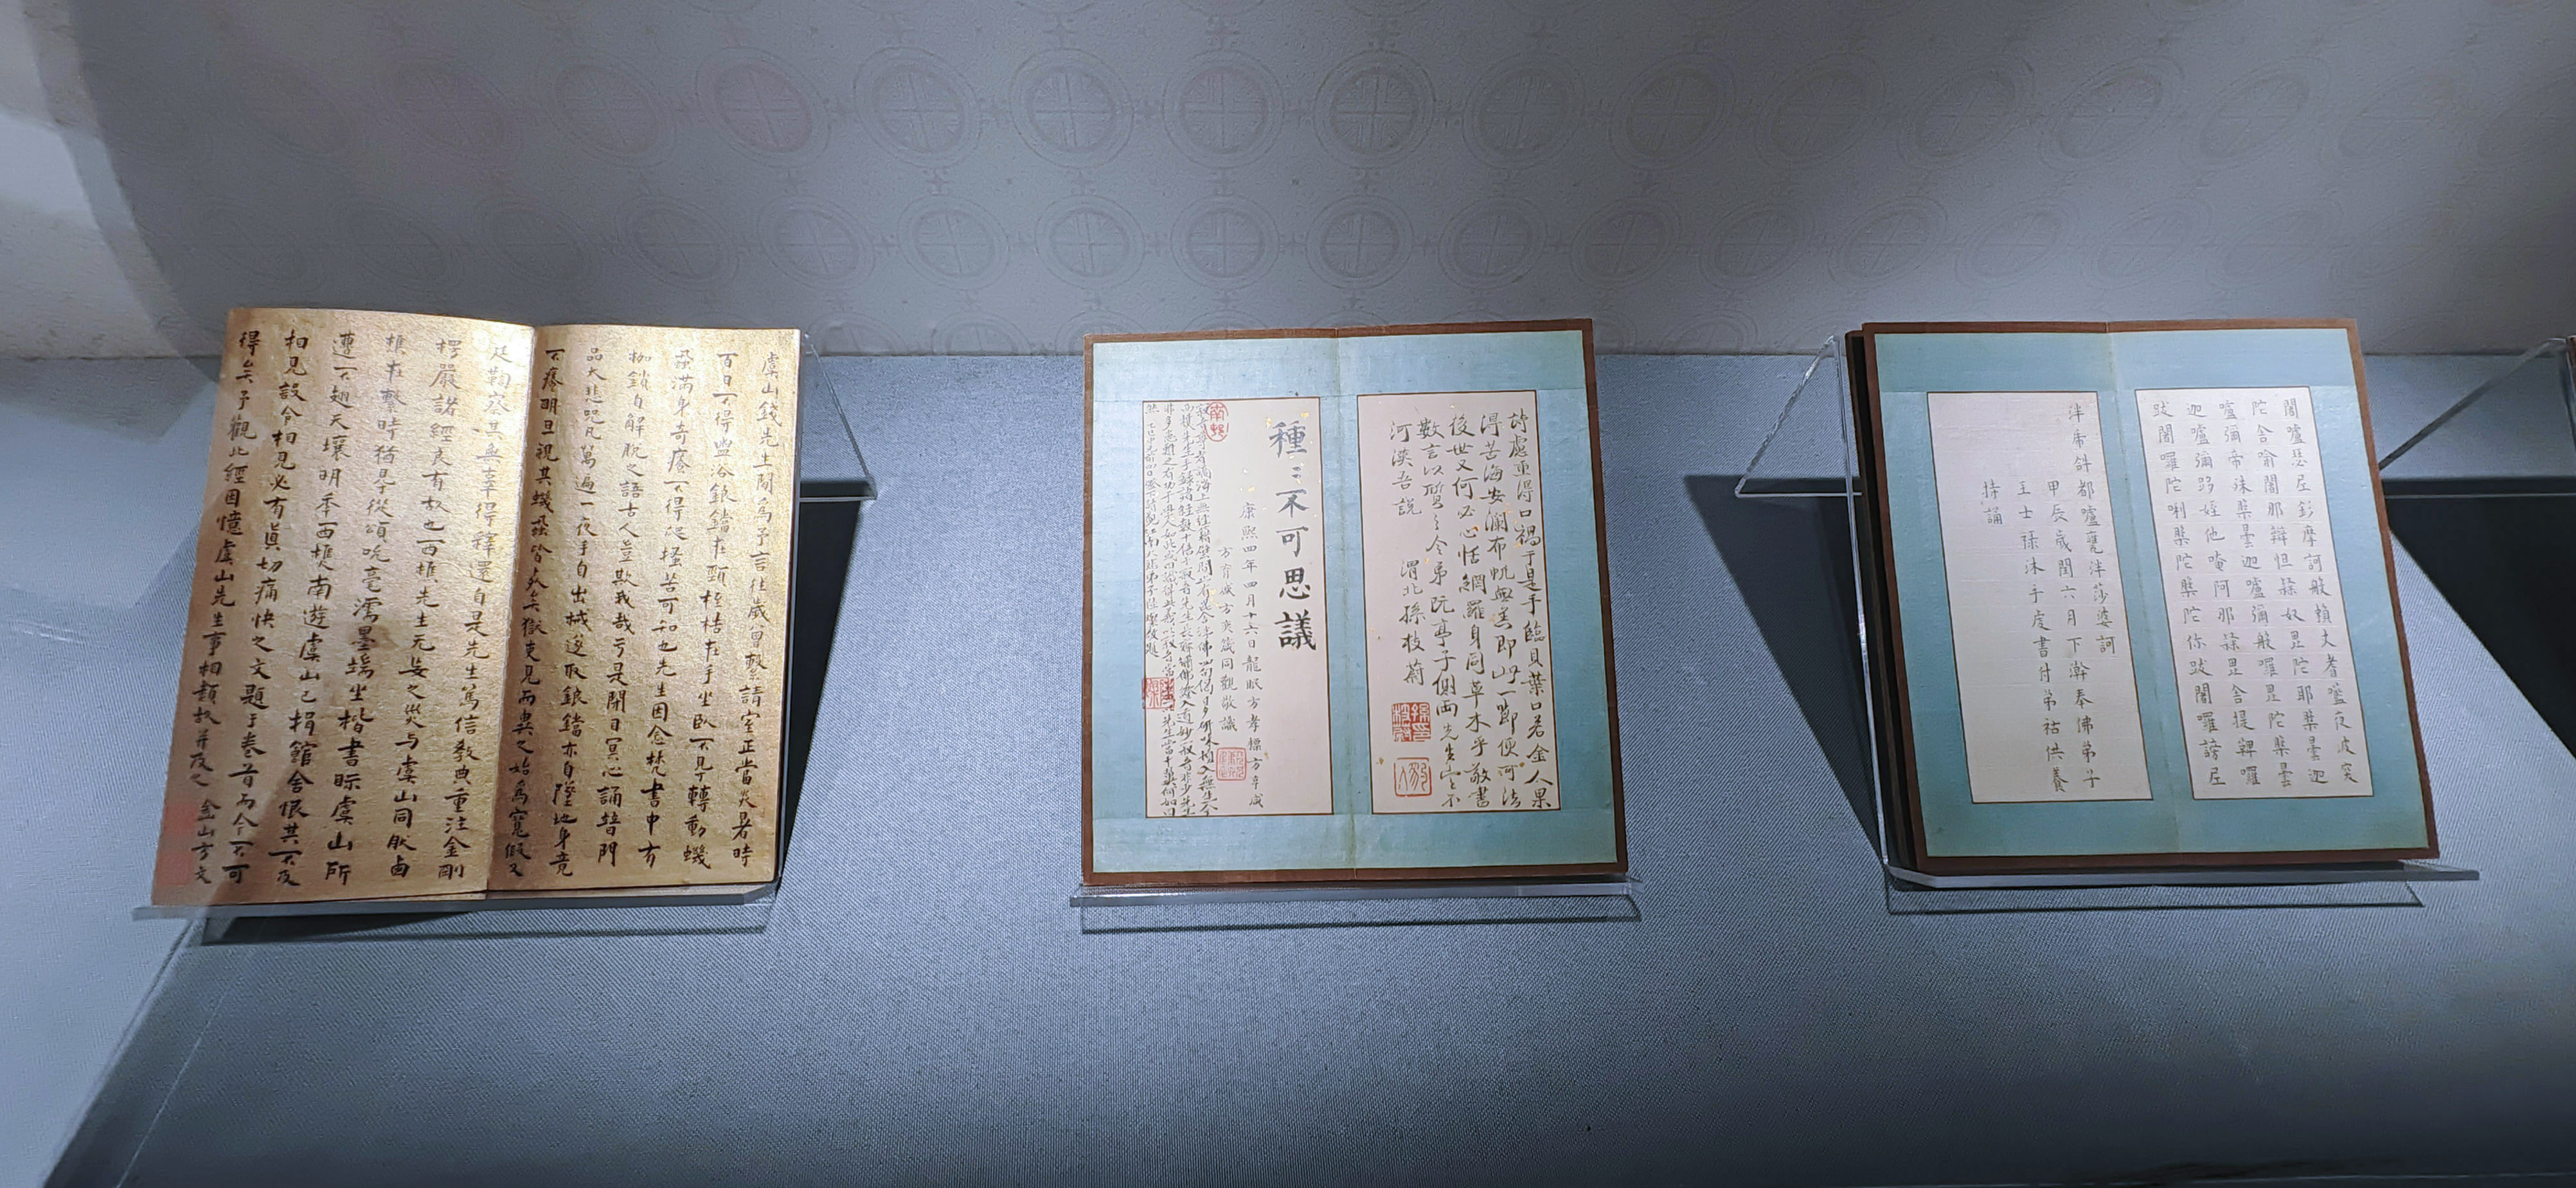 虞山錢先生閒爲予言往歲曾繫請室正當炎暑時
百日不得盥浴銀鐺在頸桎梏在手坐臥不見轉動蟣
蝨滿身奇癢不得爬搔苦可知也先生因念梵書中有
枷鎖自解脫之語古人豈欺我哉于是閉目冥心誦普門
品大悲咒凡萬遍一夜手自出械遂取銀鐺亦自墮地身竟
不癢明旦視其蟣蝨皆死矣獄吏見而異之始爲寬假又
廷鞫察其無辜得釋還自是先生篤信教典重注金剛
楞嚴諸經良有故也西樵先生无妄之災与虞山同肰西
樵在繫時猶見從頌吮毫濡墨端坐楷書眎虞山所
遭不翅天壤明季西樵南遊虞山已捐館舍恨其不及
相見設令相見必有真切痛快之文題于卷首而今不可
得矣予觀此經因憶虞山先生事相類故并及之 金山方文
詩慮重得口禍于是手臨貝葉口若金人果
得苦海安瀾布帆無恙即此一節便可法
後世又何必心恬網羅身同草木乎敬書
數言以質之令弟阮亭子側兩先生定不
河漢吾說 渭北孫枝蔚
種〻不可思議
康熙四年四月十六日龍眠方孝標方亨咸
方育盛方庚箴同觀敬識
闍嚧瑟尼釤摩訶般賴丈耆嚧夜波突
陀舍喻闍那辯怛羅奴毘陀耶槃曇迦
嚧彌帝殊槃曇迦嚧彌般囉毘陀槃曇
迦嚧彌跢姪他唵阿那隸毘舍提鞞囉
跋闍囉陀唎槃陀槃陀你跋闍囉謗尼
泮虎𤙖都嚧甕泮莎婆訶
甲辰歲閏六月下澣奉佛弟子
王士祿沐手虔書付弟祜供養
持誦